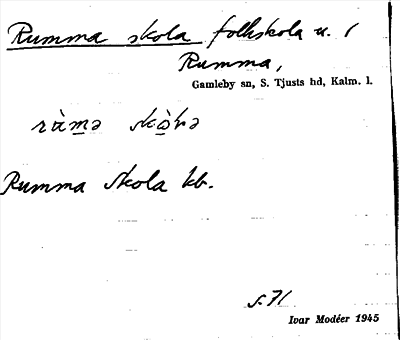 Rumma skola folkskola u. /
Rumma,
Gamleby sn, S. Tjusts hd, Kalm. l.
Rumma skola kb.
s. 71
Ivar Modéer 1945